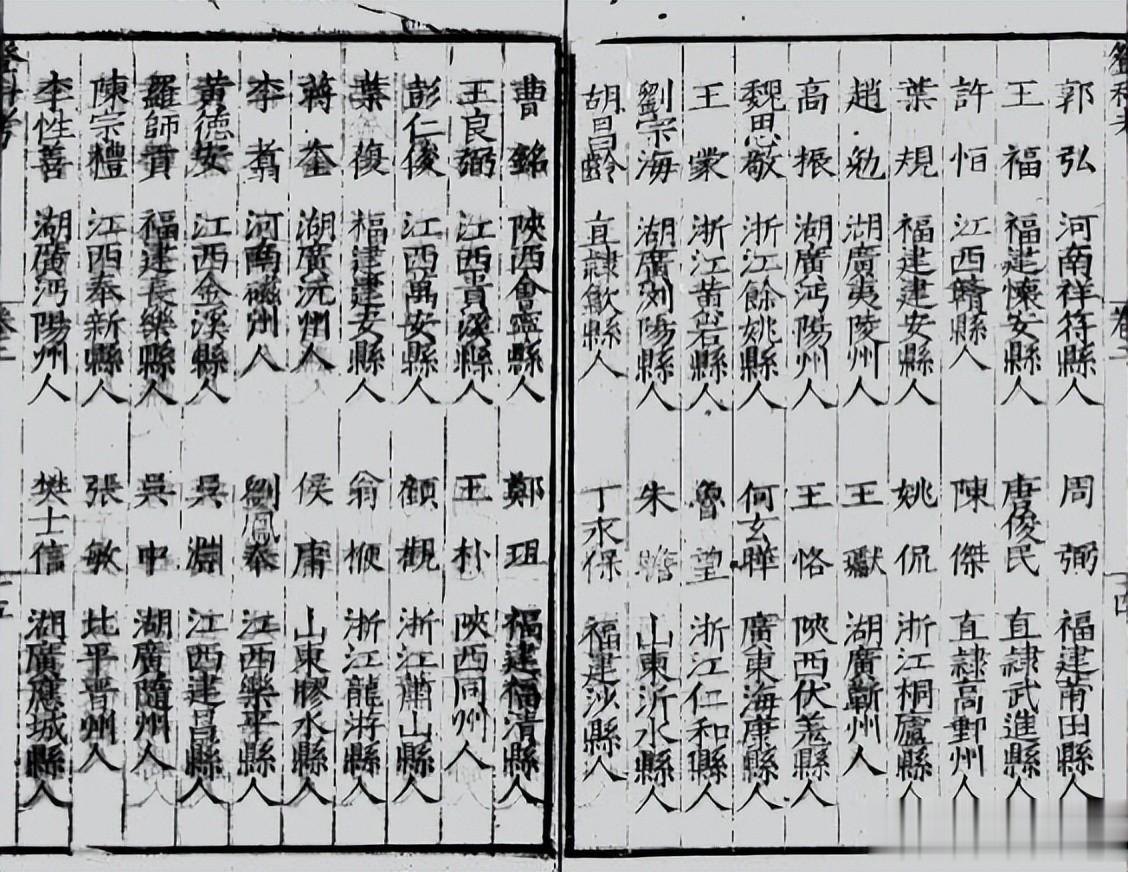 郭弘 河南祥符縣人 周弼 福建莆田縣人
王福 福建懷安縣人 唐俊民 直隸武進縣人
許恒 江西贛縣人 陳傑 直隸高郵州人
葉規 福建建安縣人 姚侃 浙江桐廬縣人
趙勉 湖廣夷陵州人 王獻 湖廣蘄州人
高振 湖廣沔陽州人 王恪 陝西伏羌縣人
魏思敬 浙江餘姚縣人 何玄曄 廣東海康縣人
王蒙 浙江黃岩縣人 魯望 浙江仁和縣人
劉宗海 湖廣瀏陽縣人 朱瞻 山東沂水縣人
胡昌齡 直隸歙縣人 丁永保 福建沙縣人
曹銘 陝西會寧縣人 鄭珇 福建福清縣人
王良弼 江西貴溪縣人 王朴 陝西同州人
彭仁俊 江西萬安縣人 顧觀 浙江蕭山縣人
葉復 福建建安縣人 翁楩 浙江龍游縣人
蔣奎 湖廣沅州人 侯庸 山東膠水縣人
李翥 河南磁州人 劉鳳奉 江西樂平縣人
黃德安 江西金溪縣人 吳淵 江西建昌縣人
羅師貢 福建長樂縣人 吳中 湖廣隨州人
陳宗禮 江西奉新縣人 張敏 北平晉州人
李性善 湖廣沔陽州人 樊士信 湖廣應城縣人